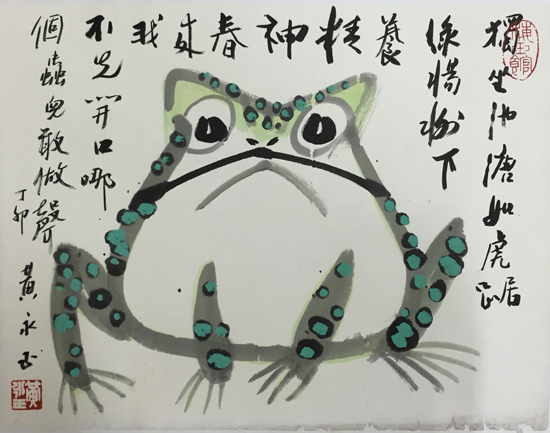 獨坐池塘如虎踞
綠楊樹下
養精神春來我
不先開口哪
個蟲兒敢做聲
丁卯
黃永玉